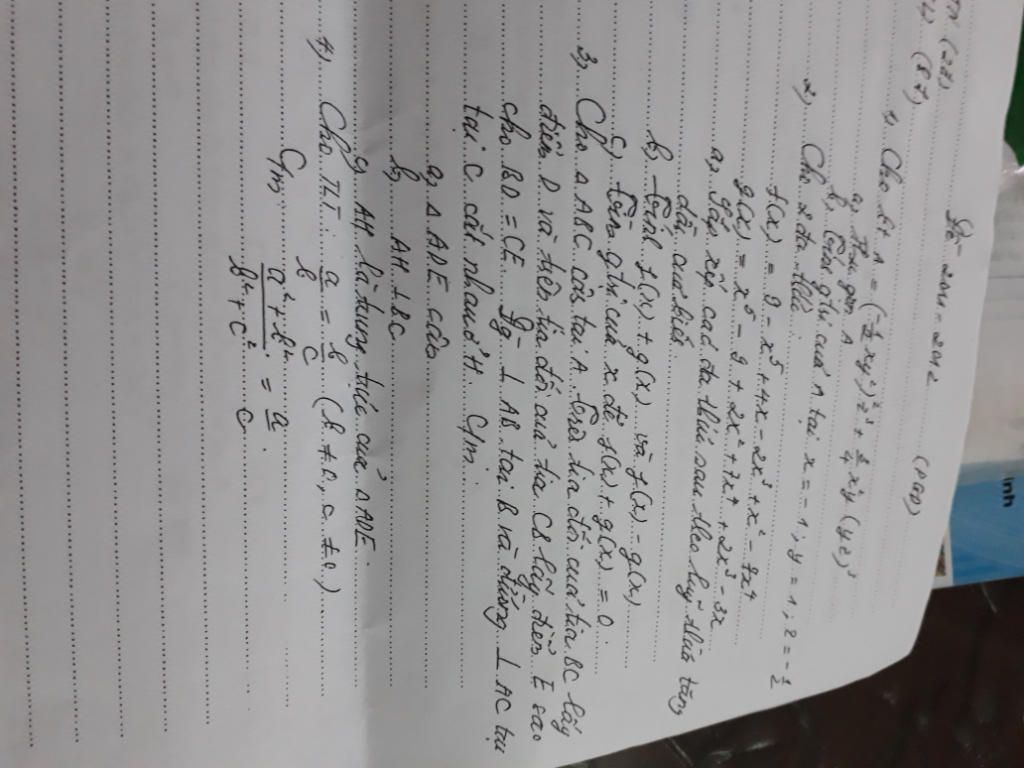 Đề 2011-2012
(DBD)
1, Cho bt A = (-1/2 xy²)² z³ + 3/4 x²y (yz)³
a, Thu gọn A
b, Tính gtrị của A tại x = -1; y = 1; z = -1
2, Cho 2 đa thức:
f(x) = 9 - x⁵ + 4x - 2x³ + x² - 7x⁴
g(x) = x⁵ - 9 + 2x² + 7x⁴ + 2x³ - 3x
a, Sắp xếp các đa thức sau theo luỹ thừa tăng
dần của biến
b, Tính f(x) + g(x) và f(x) - g(x)
c, Tìm gtrị của x để f(x) + g(x) = 0.
3, Cho Δ ABC cân tại A. Trên tia đối của tia BC lấy
điểm D và trên tia đối của tia CB lấy điểm E sao
cho BD = CE. Đg ⊥ AB tại B và đường ⊥ AC tại
tại C cắt nhau ở H. C/m:
a, Δ ADE cân
b, AH ⊥ BC
c, AH là trung trực của Δ ADE.
4, Cho TLT: a/b = b/c (b ≠ 0, c ≠ 0)
C/m (a² + b²)/(b² + c²) = a/c.
inh